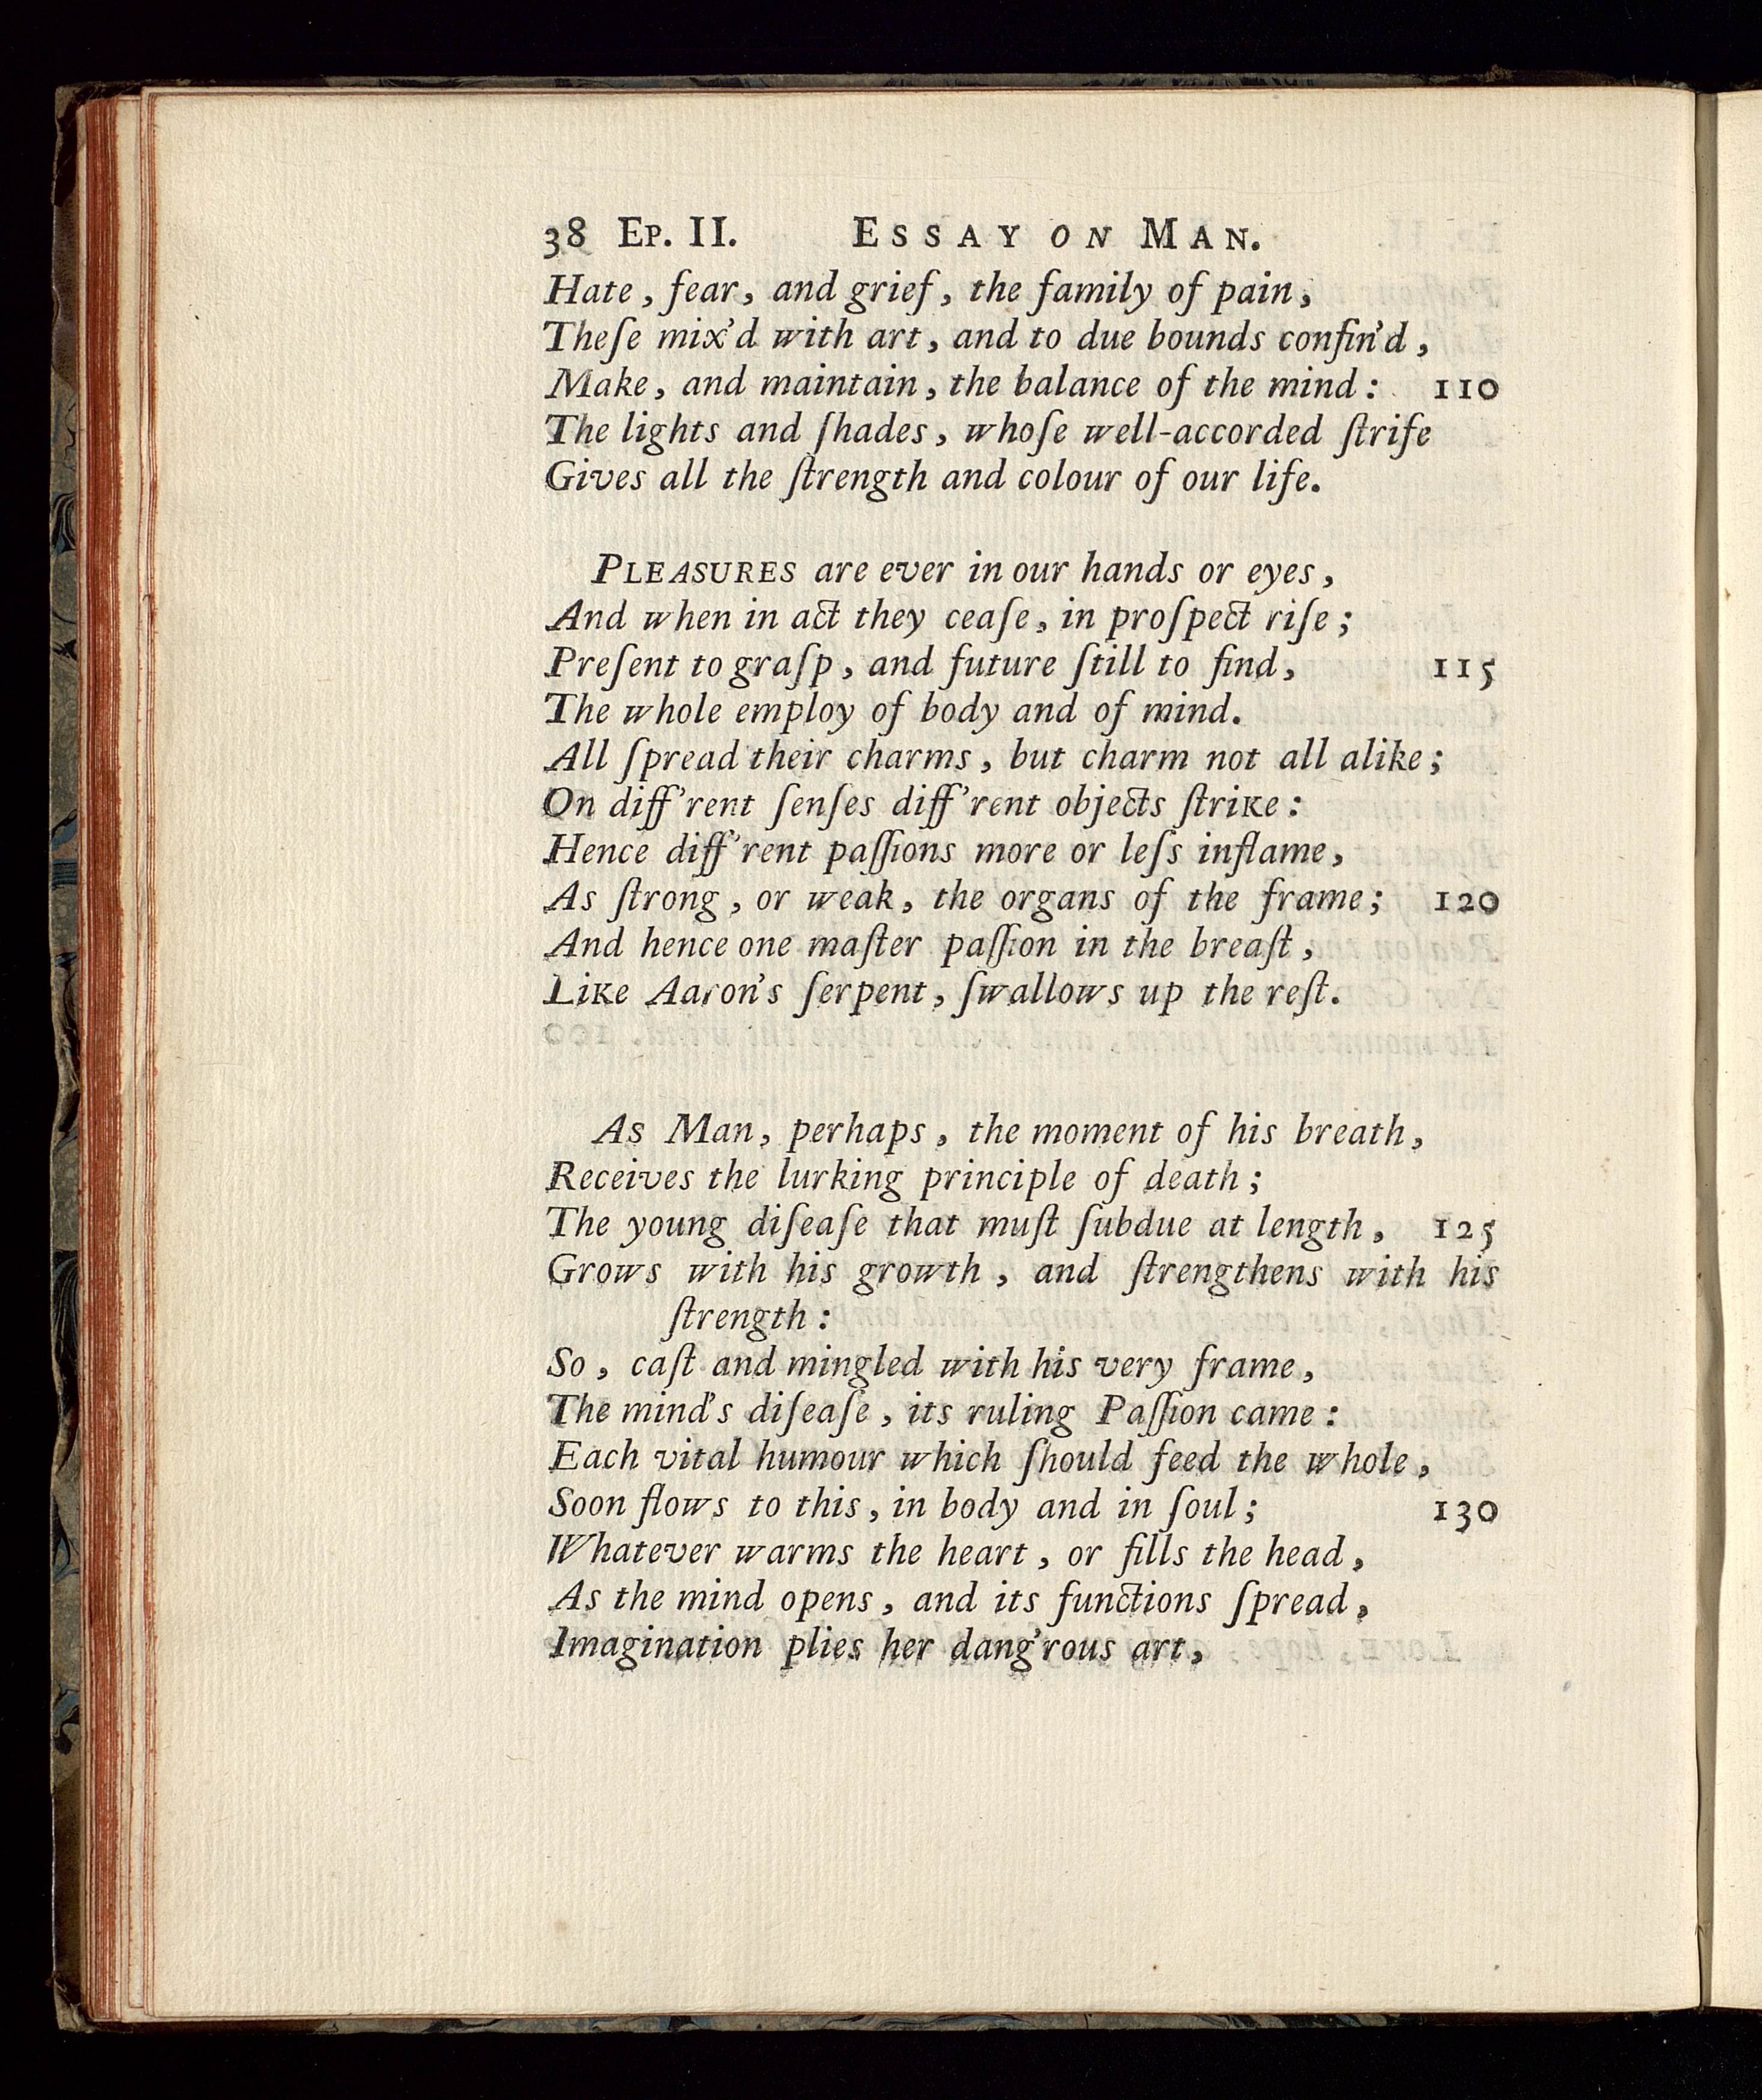 38 Ep. II. Essay on Man.
Hate, fear, and grief, the family of pain,
Theſe mix'd with art, and to due bounds confin'd,
Make, and maintain, the balance of the mind: 110
The lights and ſhades, whoſe well-accorded ſtrife
Gives all the ſtrength and colour of our life.
Pleasures are ever in our hands or eyes,
And when in act they ceaſe, in proſpect riſe;
Preſent to graſp, and future ſtill to find, 115
The whole employ of body and of mind.
All ſpread their charms, but charm not all alike;
On diff'rent ſenſes diff'rent objects ſtrike:
Hence diff'rent paſſions more or leſs inflame,
As ſtrong, or weak, the organs of the frame; 120
And hence one maſter paſſion in the breaſt,
Like Aaron's ſerpent, ſwallows up the reſt.
As Man, perhaps, the moment of his breath,
Receives the lurking principle of death;
The young diſeaſe that muſt ſubdue at length, 125
Grows with his growth, and ſtrengthens with his
ſtrength:
So, caſt and mingled with his very frame,
The mind's diſeaſe, its ruling Paſſion came:
Each vital humour which ſhould feed the whole,
Soon flows to this, in body and in ſoul; 130
Whatever warms the heart, or fills the head,
As the mind opens, and its functions ſpread,
Imagination plies her dang'rous art,